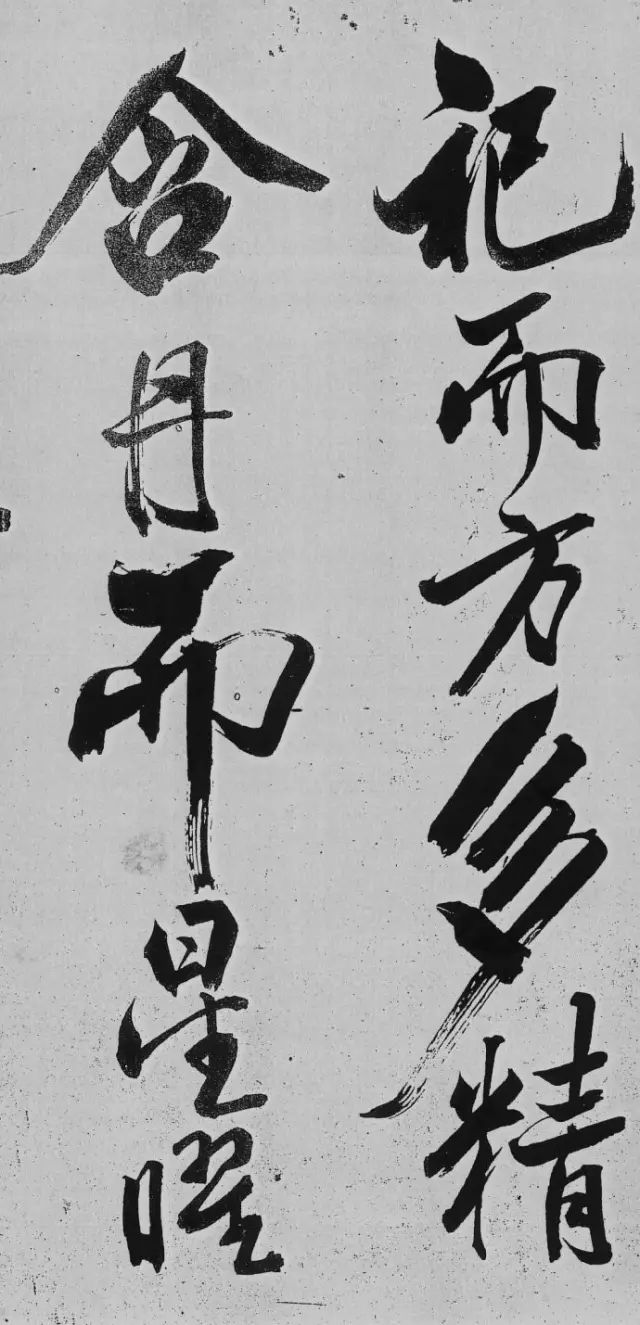 祀而方多精
含丹而星曜